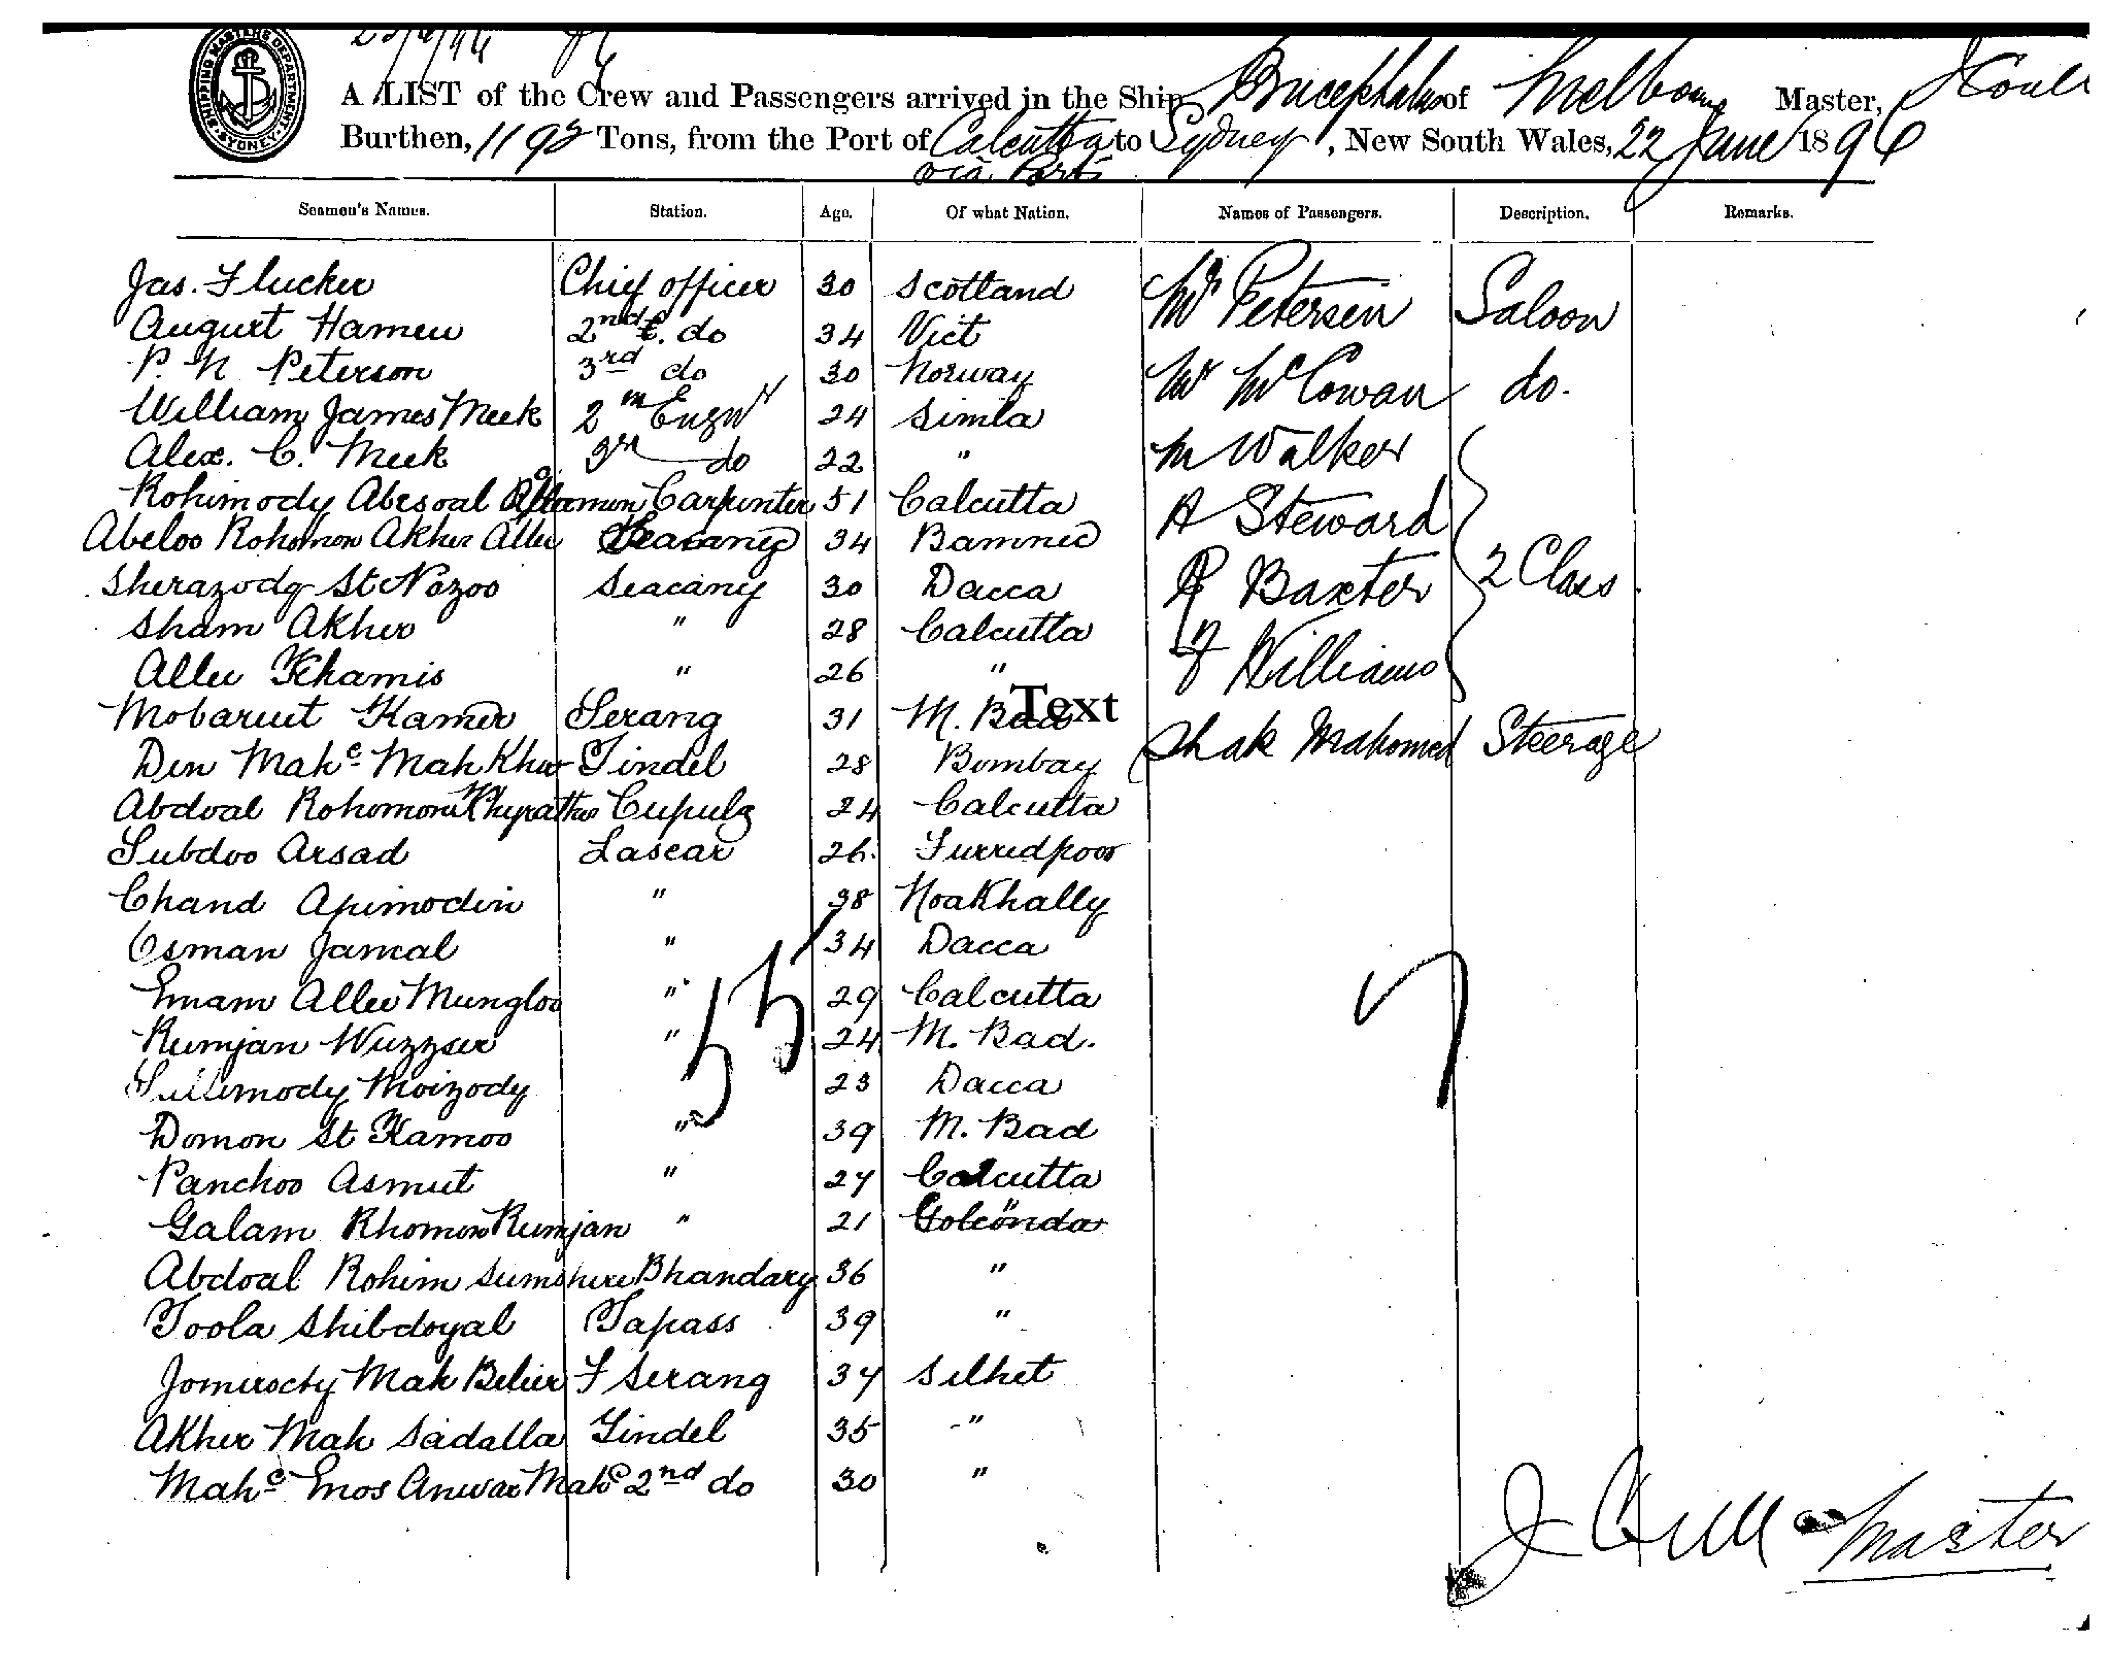 SHIPPING MASTERS DEPARTMENT. SYDNEY.
A LIST of the Crew and Passengers arrived in the Ship Bucephalus of Melbourne Master,
Burthen, 1193 Tons, from the Port of Calcutta to Sydney, New South Wales, 22 June 1896
via Ports
Seamen's Names. Station. Age. Of what Nation. Names of Passengers. Description. Remarks.
Jas. Flucker Chief officer 30 Scotland Mr Petersen Saloon
August Hamen 2nd do 34 Vict
P. N Peterson 3rd do 30 Norway Mr McCowan do.
William James Meek 2 Engnr 24 Simla
Alex. C. Meek 3rd do 22 " M Walker
Rohimody Abesoal Carpenter 51 Calcutta A Steward
Abeloo Rohomon Akher Allee Seacany 34 Bamnee
Sherazody St Nozoo Seacany 30 Dacca Baxter 2 Class
Sham Akher " 28 Calcutta
Allee Khamis " 26 " F Williams
Text
Mobarut Kamer Serang 31 M. Bad Shak Mahomed Steerage
Den Mahc Mah Kher Tindel 28 Bombay
Abdoal Rohomon Khyrather 24 Calcutta
Subdoo Arsad Lascar 26 Furredpoor
Chand Apimodin " 38 Noakhally
Osman Jamal " 34 Dacca
Emam Allee Mungloo " 29 Calcutta
Rumjan Wuzzeer " 24 M. Bad.
55
7
Moizody " 23 Dacca
Domon St Kamoo " 39 M. Bad
Panchoo Asmut " 27 Calcutta
Galam Rhomon Rumjan " 21 Golconda "
Abdoal Rohim Sumshere Bhandary 36 "
Toola Shibdoyal Tapass 39 "
Mah Belier F Serang 37 Silhet
Akher Mah Sadalla Tindel 35 "
Mahc Emos Anwar Mahc 2nd do 30 "
Master